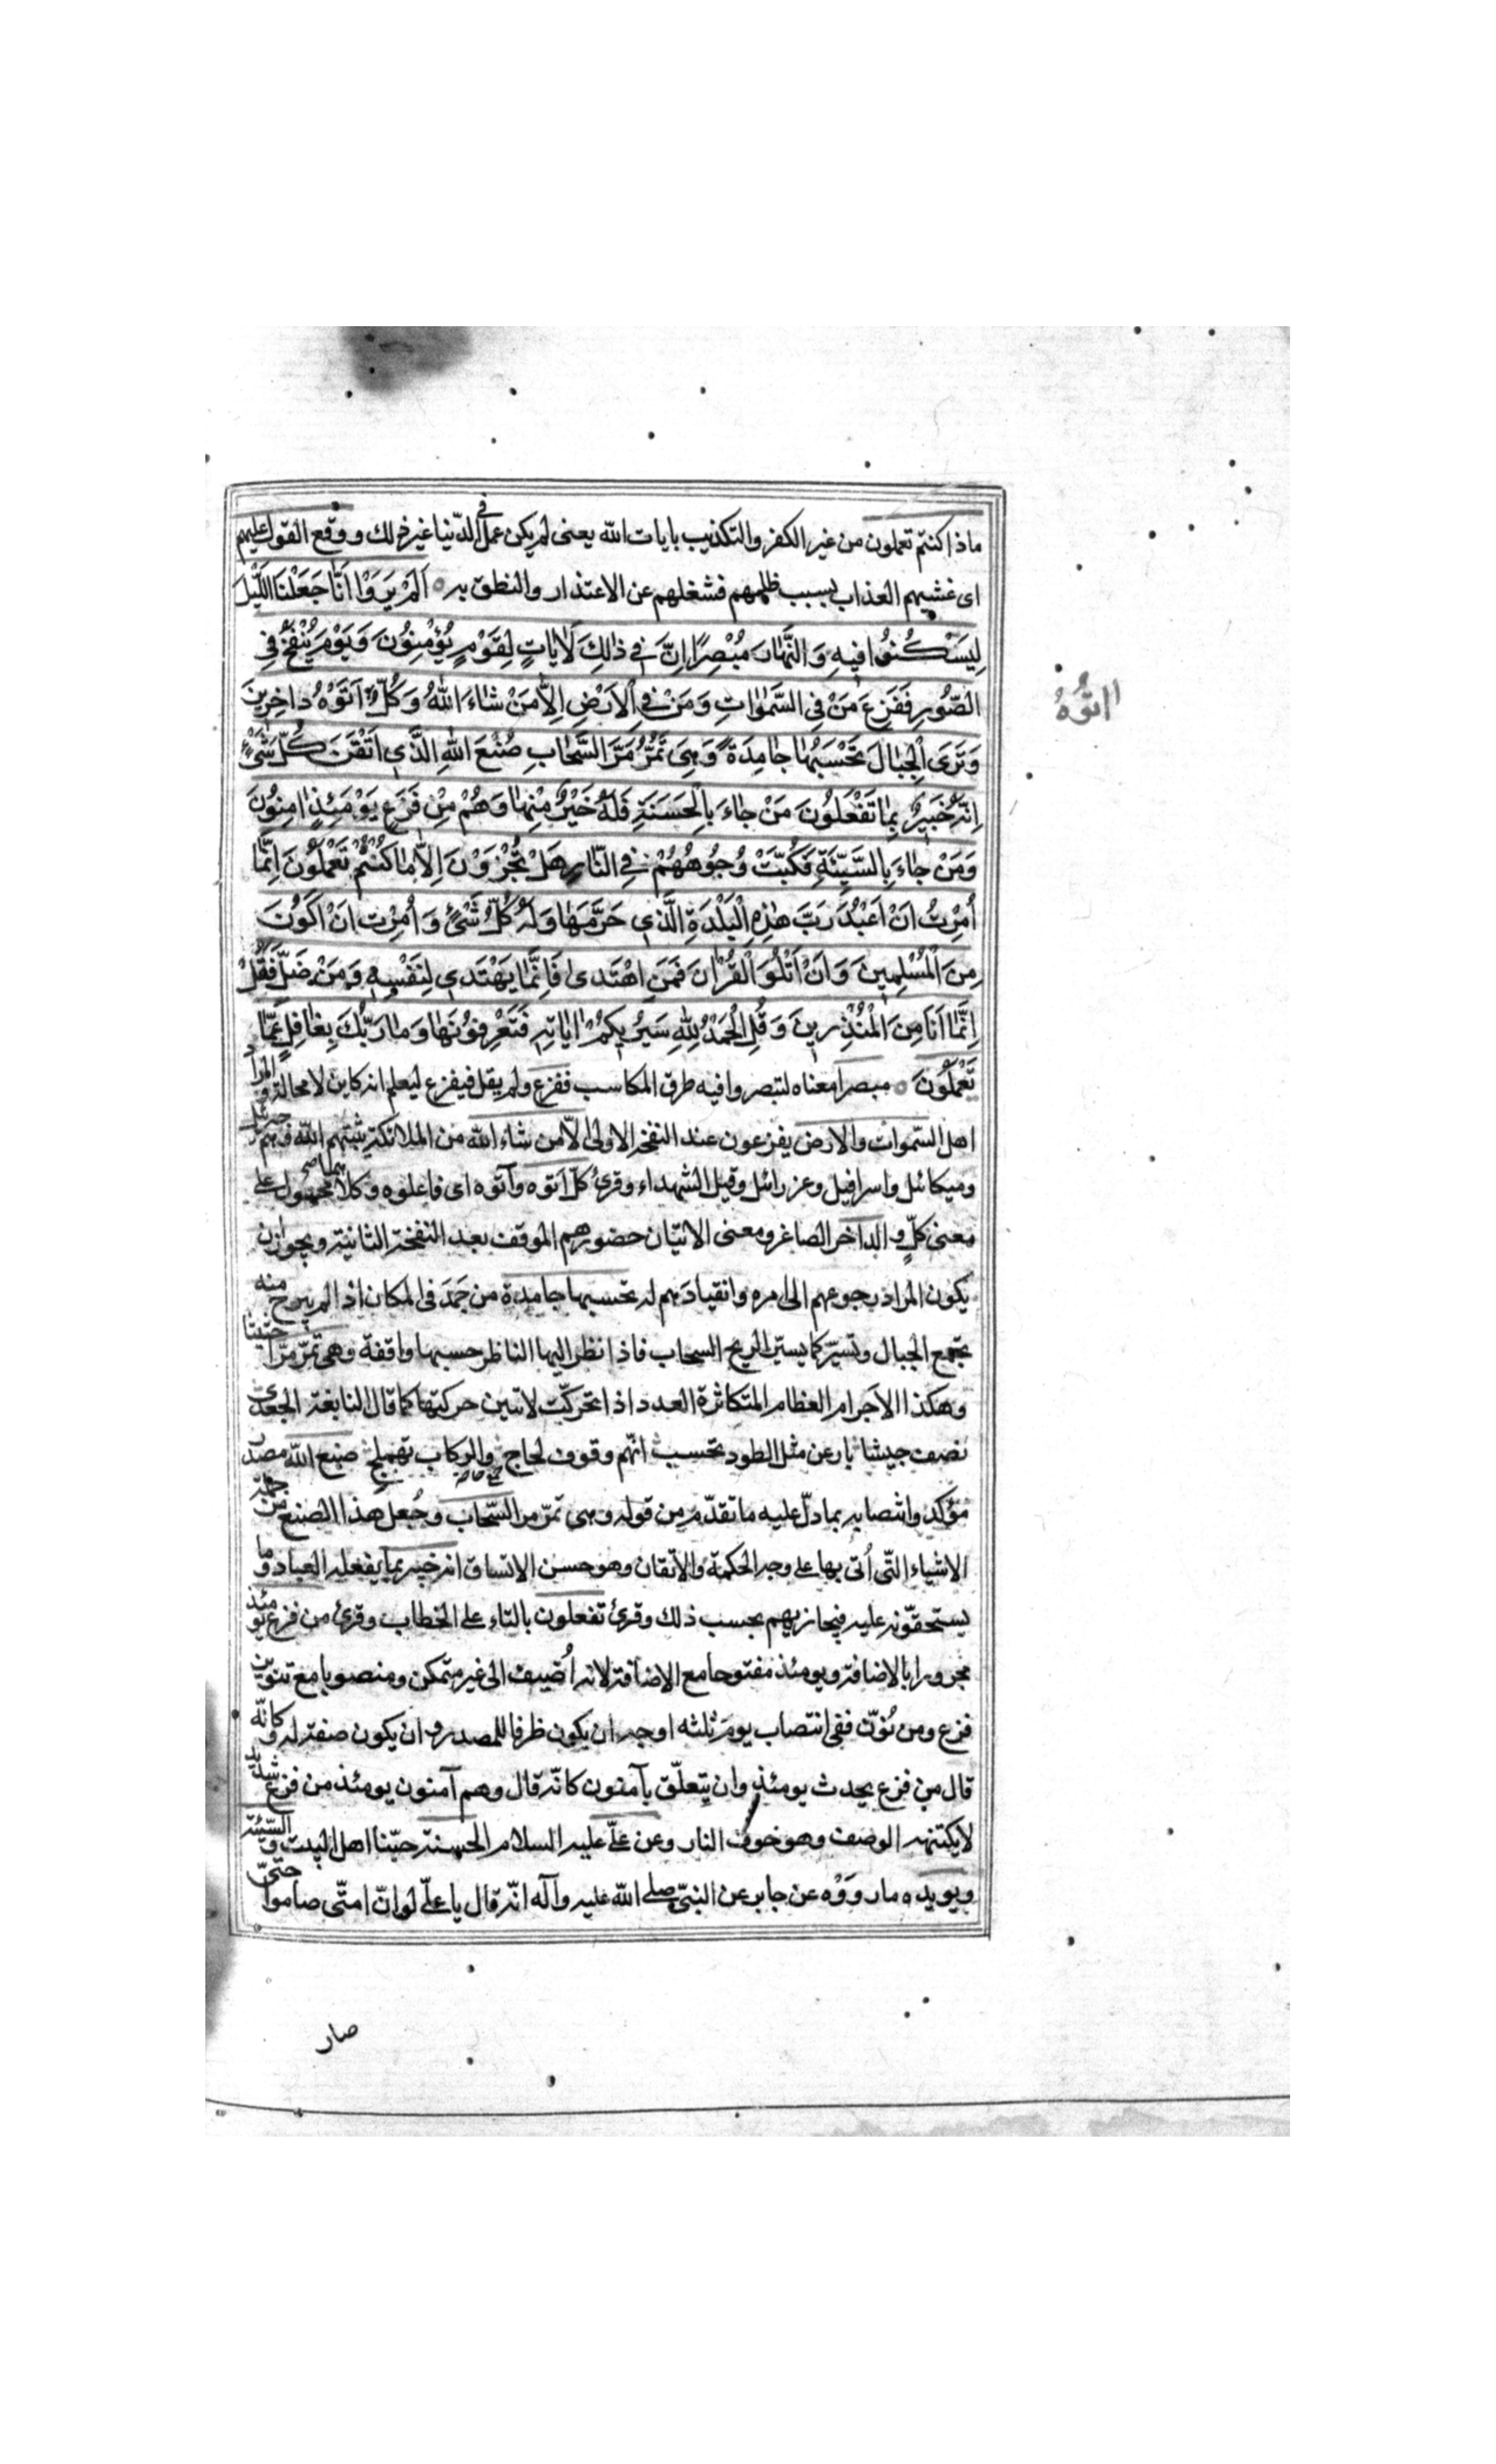 ماذا كنتم تعملون من غير الكفر والتكذيب بايات الله يعنى لم يكن عمل فى الدّنيا غير ذلك ووقع القول عليهم
اى غشيهم العذاب بسبب ظلمهم فشغلهم عن الاعتذار والنطق به ۝ اَلَمْ يَرَوْا اَنَّا جَعَلْنَا اللَّيْلَ
لِيَسْكُنُوا فِيهِ وَالنَّهٰارَ مُبْصِرًا اِنَّ فِي ذٰلِكَ لَاٰيٰاتٍ لِقَوْمٍ يُؤْمِنُونَ وَيَوْمَ يُنْفَخُ فِي
الصُّورِ فَفَزِعَ مَنْ فِي السَّمٰوٰاتِ وَمَنْ فِي الْاَرْضِ اِلّٰا مَنْ شٰاءَ اللهُ وَكُلٌّ اَتَوْهُ دٰاخِرِينَ
اتَوُّهُ
وَتَرَى الْجِبٰالَ تَحْسَبُهٰا جٰامِدَةً وَهِيَ تَمُرُّ مَرَّ السَّحٰابِ صُنْعَ اللهِ الَّذِي اَتْقَنَ كُلَّ شَيْءٍ
اِنَّهُ خَبِيرٌ بِمٰا تَفْعَلُونَ مَنْ جٰاءَ بِالْحَسَنَةِ فَلَهُ خَيْرٌ مِنْهٰا وَهُمْ مِنْ فَزَعٍ يَوْمَئِذٍ اٰمِنُونَ
وَمَنْ جٰاءَ بِالسَّيِّئَةِ فَكُبَّتْ وُجُوهُهُمْ فِي النّٰارِ هَلْ تُجْزَوْنَ اِلّٰا مٰا كُنْتُمْ تَعْمَلُونَ اِنَّمٰا
اُمِرْتُ اَنْ اَعْبُدَ رَبَّ هٰذِهِ الْبَلْدَةِ الَّذِي حَرَّمَهٰا وَلَهُ كُلُّ شَيْءٍ وَاُمِرْتُ اَنْ اَكُونَ
مِنَ الْمُسْلِمِينَ وَاَنْ اَتْلُوَ الْقُرْاٰنَ فَمَنِ اهْتَدىٰ فَاِنَّمٰا يَهْتَدِي لِنَفْسِهِ وَمَنْ ضَلَّ فَقُلْ
اِنَّمٰا اَنَا مِنَ الْمُنْذِرِينَ وَقُلِ الْحَمْدُ لِلّٰهِ سَيُرِيكُمْ اٰيٰاتِهِ فَتَعْرِفُونَهٰا وَمٰا رَبُّكَ بِغٰافِلٍ عَمّٰا
تَعْمَلُونَ ۝ مبصرا معناه لتبصروا فيه طرق المكاسب ففزع ولم يقل فيفزع ليعلم انه كاين لا محالة والمراد
اهل السّموات والارض يفزعون عند النفخة الاولى الّا من شاء الله من الملائكة يثبتهم الله وهم جبرئيل
وميكائل واسرافيل وعزرائل وقيل الشهداء وقرئ كلّ اتوه وآتوه اى فاعلوه وكلاهما محمول على
معنى كلٍّ و الداخر الصاغر ومعنى الاتيان حضورهم الموقف بعد النفخة الثانية ويجوز ان
يكون المراد رجوعهم الى امره وانقيادهم له تحسبها جامدة من جَمَدَ فى المكان اذا لم يبرح منه
تجمع الجبال وتسيّر كما يسيّر الريح السحاب فاذا نظر اليها الناظر حسبها واقفة وهى تمرّ مرّا حثيثا
وهكذا الاجرام العظام المتكاثرة العدد اذا تحركّت لا تبين حركتها كما قال النابغة الجعدى
نصف جيشا بارعن مثل الطود تحسب انّهم وقوف لحاج والركاب تهملج صنع الله مصدر
مؤكد وانتصابه بما دلّ عليه ما تقدّم من قوله وهى تمرّ مر السّحاب وجُعل هذا الصنع من جملة
الاشياء التّى اُتى بها على وجه الحكمة والاتقان وهو حسن الاتساق انه خبير بما يفعله العباد و ما
يستحقّونه عليه فيجازيهم بحسب ذلك وقرئ تفعلون بالتاء على الخطاب وقرئ من فزع يومئذ
مجرورا بالاضافة ويومئذ مفتوحا مع الاضافة لانه اُضيف الى غير متمكن ومنصوبا مع تنوين
فزع ومن نُوّن ففى انتصاب يوم ثلثه اوجه ان يكون ظرفا للمصدر و ان يكون صفة له كانّه
قال من فزع يحدث يومئذ وان يتعلّق بآمنون كانّه قال وهم آمنون يومئذ من فزع شديد
لا يكتنهه الوصف وهو خوف النار وعن علىّ عليه السلام الحسنة حبّنا اهل البيت و السّيّئة
ويويده ما رووْه عن جابر عن النبىّ صلى الله عليه وآله انّه قال يا علىّ لو انّ امتّى صاموا حتىّ
صار